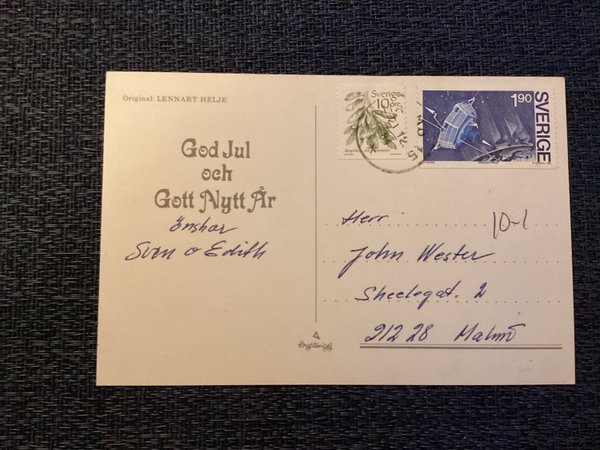 Original: LENNART HELJE
God Jul
och
Gott Nytt År
önskar
Sven o Edith
Sverige
10
1.90
SVERIGE
10-1
Herr
John Wester
Sheelegat. 2
212 28 Malmö